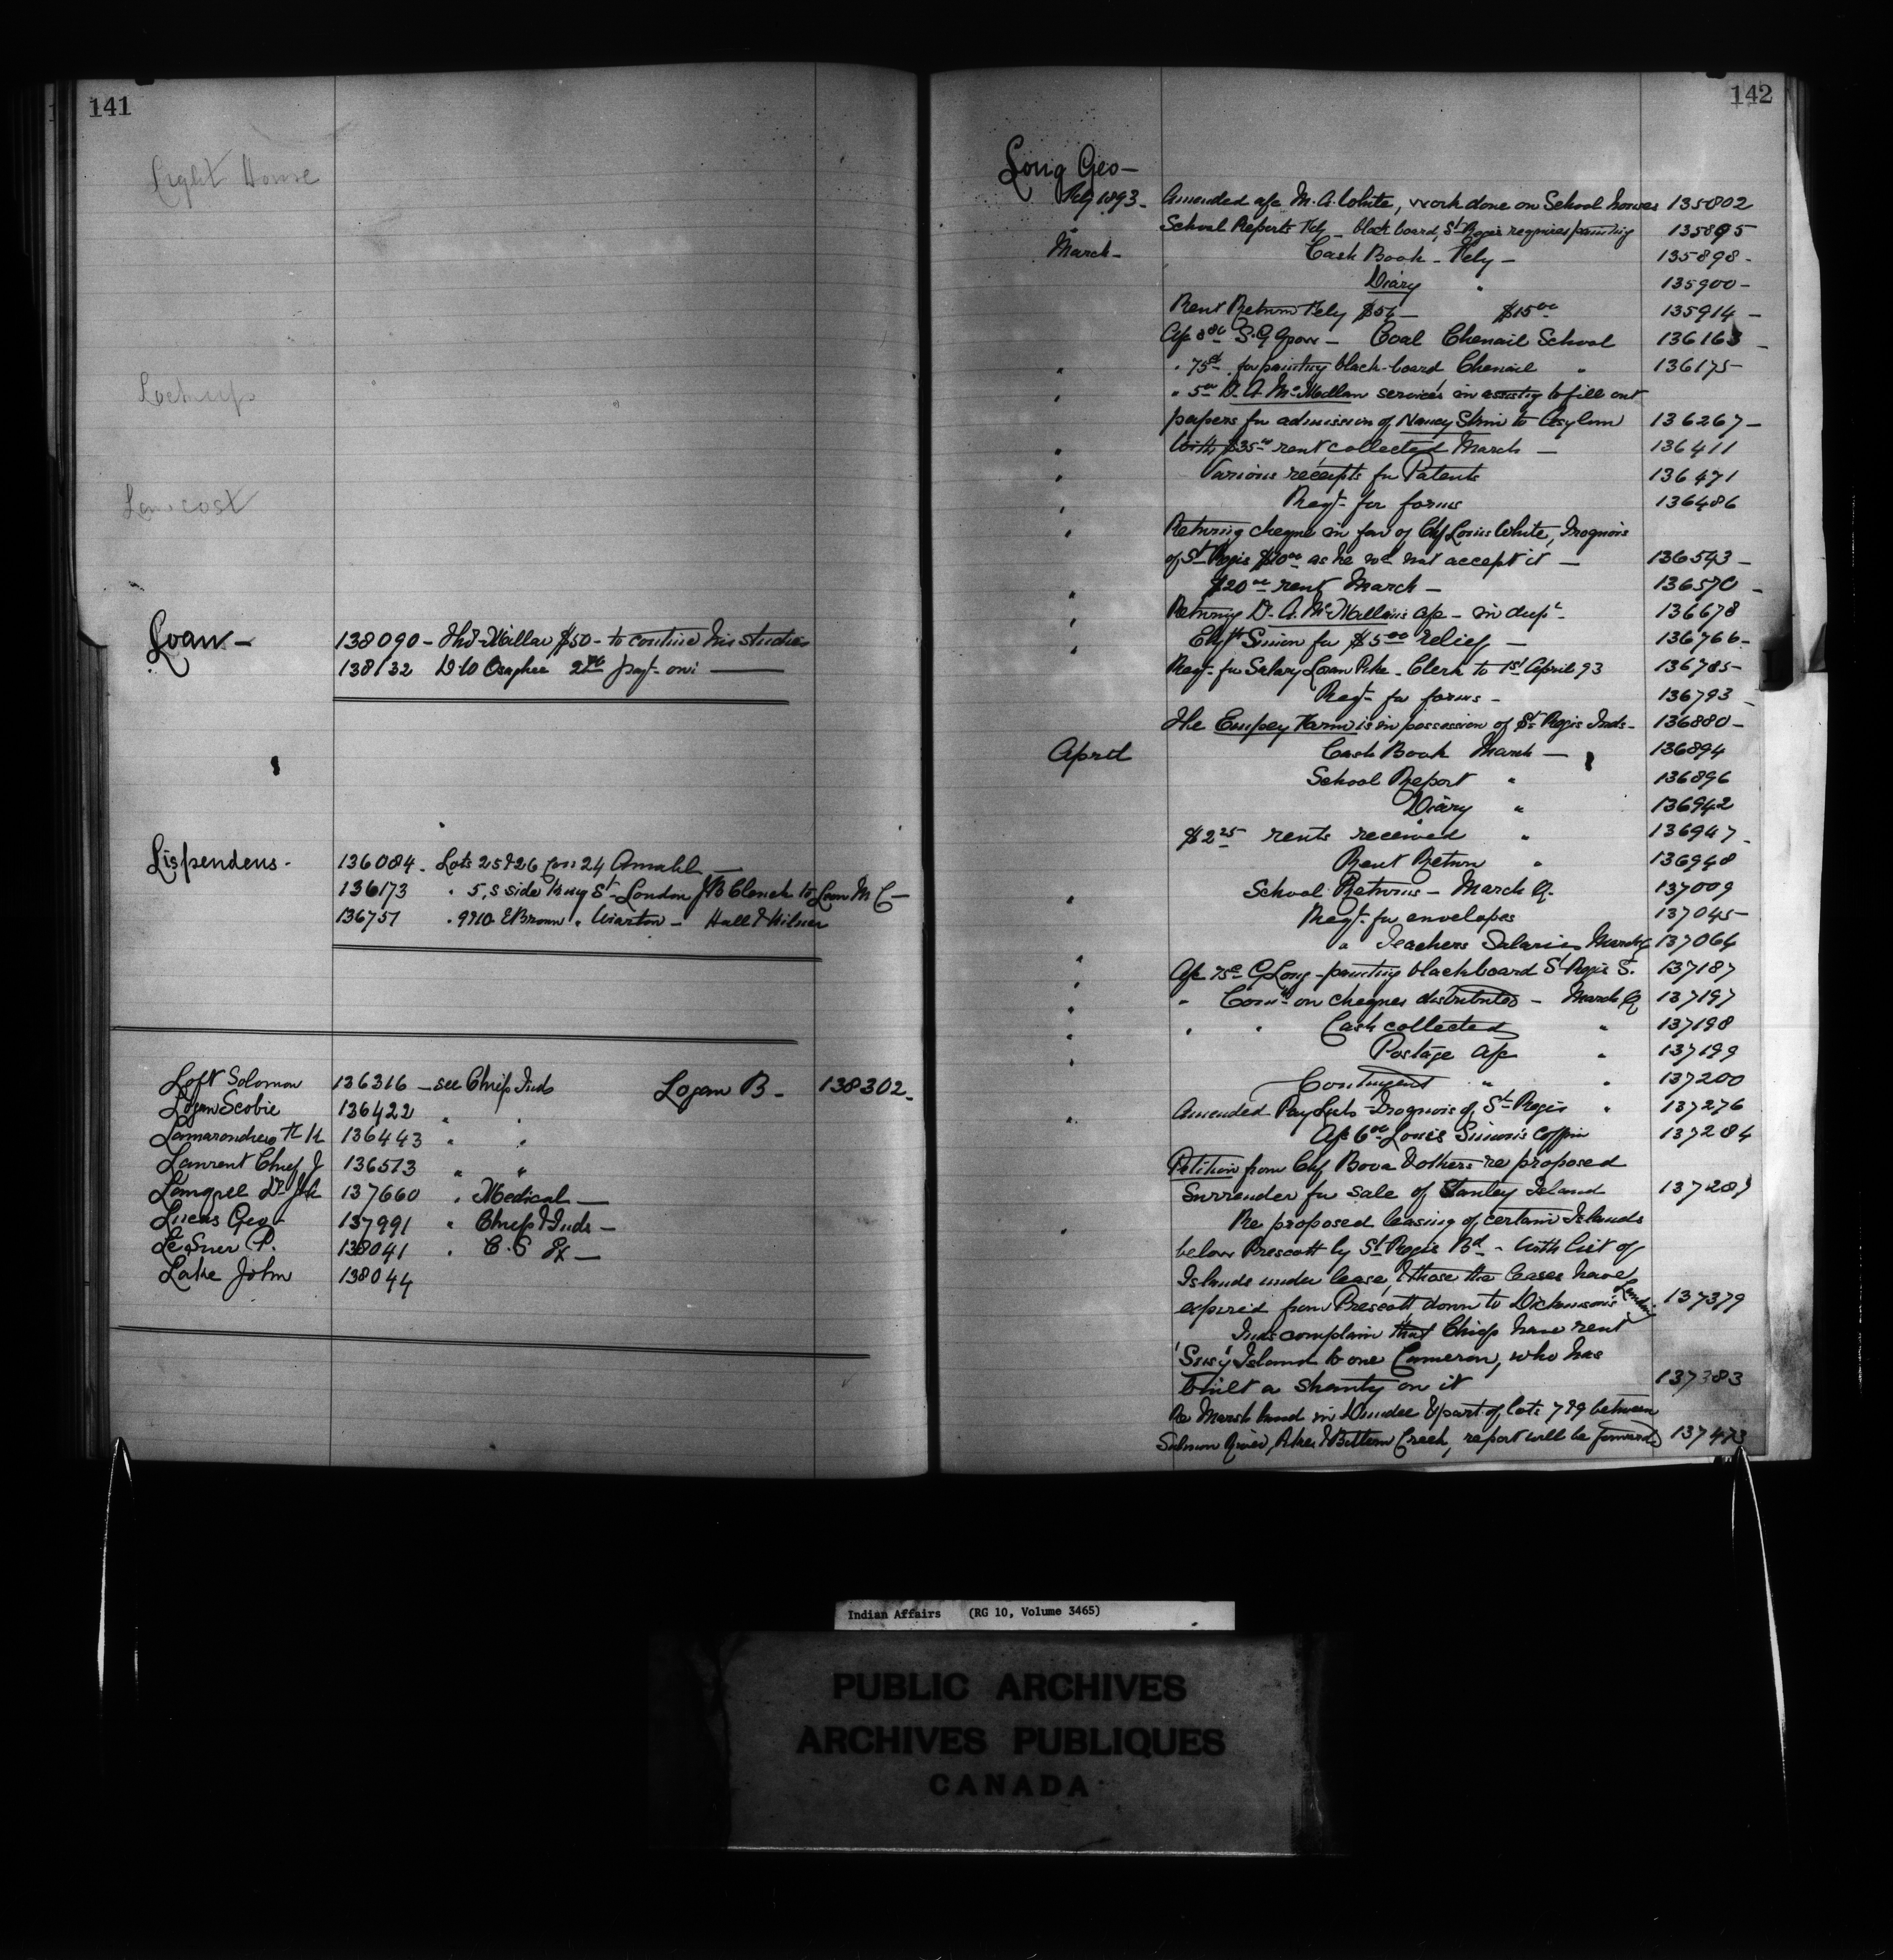 141
Light House
Lockup
Low cost
Loan -
138090 - Thos Millar $50 - to continue his studies
138132 D W Osaghee 2nd payt. on
Lispendens -
136084 - Lots 25 & 26 Con 24 Amabl
136173 " 5, S side King St - London J B Clench to Loan M C -
136751 . 9 & 10 E Brown " Wiarton - Hall & Hilner
Loft Solomon 136316 - see Chiefs Inds Logan B - 138302 -
Logan Scobie 136422 " "
Lamarandiere H K 136443 " "
Laurent Chief J 136513 " "
Langrel Dr 137660 " Medical -
Lucas Geo - 137991 " Chiefs & Inds -
LeSuer P. 138041 " C. S Ex -
Lake John 138044
142
Long Geo -
Feby 1893 - Amended a/c M. A. White, work done on School houses 135802
School Reports Feby - black board, St Regis requires painting 135895
March - Cash Book - Feby - 135898 -
Diary " 135900 -
Rent Return Feby $5 - $15 00 135914 -
A/c S. G. Grow - Coal Chenail School 136163 -
" " 75 c for painting black-board Chenail " 136175
" " 5 00 D. A. McMillan services in assisting to fill out
papers for admission of Nancy to Asylum 136267 -
" With $35 00 rent collected March - 136411
" Various receipts for Patents 136471
" Reqt. for forms 136486
" Returning cheque in fav of Chf Louis White, Iroquois
of St Regis $10 00 as he wd not accept it - 136543 -
" $20 00 rent March - 136570 -
" Returning D. A. McMillan's a/c - in dupt - 136678
" Simon for $5 00 relief - 136766 -
Reqt - for Salary Loan Pike - Clerk to 1st April 93 136785 -
Reqt - for forms - 136793 -
The Empey Farm is in possession of St Regis Inds - 136880 -
April Cash Book March - 136894
School Report " 136896
Diary " 136942
$2 25 rents received " 136947 -
Rent Return " 136948
" School Returns - March Q. 137009
Reqt. for envelopes 137045 -
" Teachers Salaries March Q 137064
" A/c 75 c G Long - painting blackboard St Regis S. 137187
" " Comn on cheques distributed - March Q 137197
" " " Cash collected " 137198
" Postage a/c " 137199
Contingent " " 137200
" Amended Pay Lists - Iroquois of St Regis " 137276
A/c 6 00 Louis Simon's coffin 137284
Petition from Chf Bova & others re proposed
Surrender for sale of Stanley Island 137287
" Re proposed leasing of certain Islands
below Prescott by St Regis Bd - With list of
Islands under lease, & those the leases have
expired from Prescott down to Dickinson's Landing 137379
Inds complain that Chiefs have rent
Island to one Cameron, who has
built a shanty on it 137383
Re Marsh land in Dundee & part of lots 7 & 9 between
Salmon River, Pikes & Bittern Creek, report will be forwarded 137473
Indian Affairs (RG 10, Volume 3465)
PUBLIC ARCHIVES
ARCHIVES PUBLIQUES
CANADA